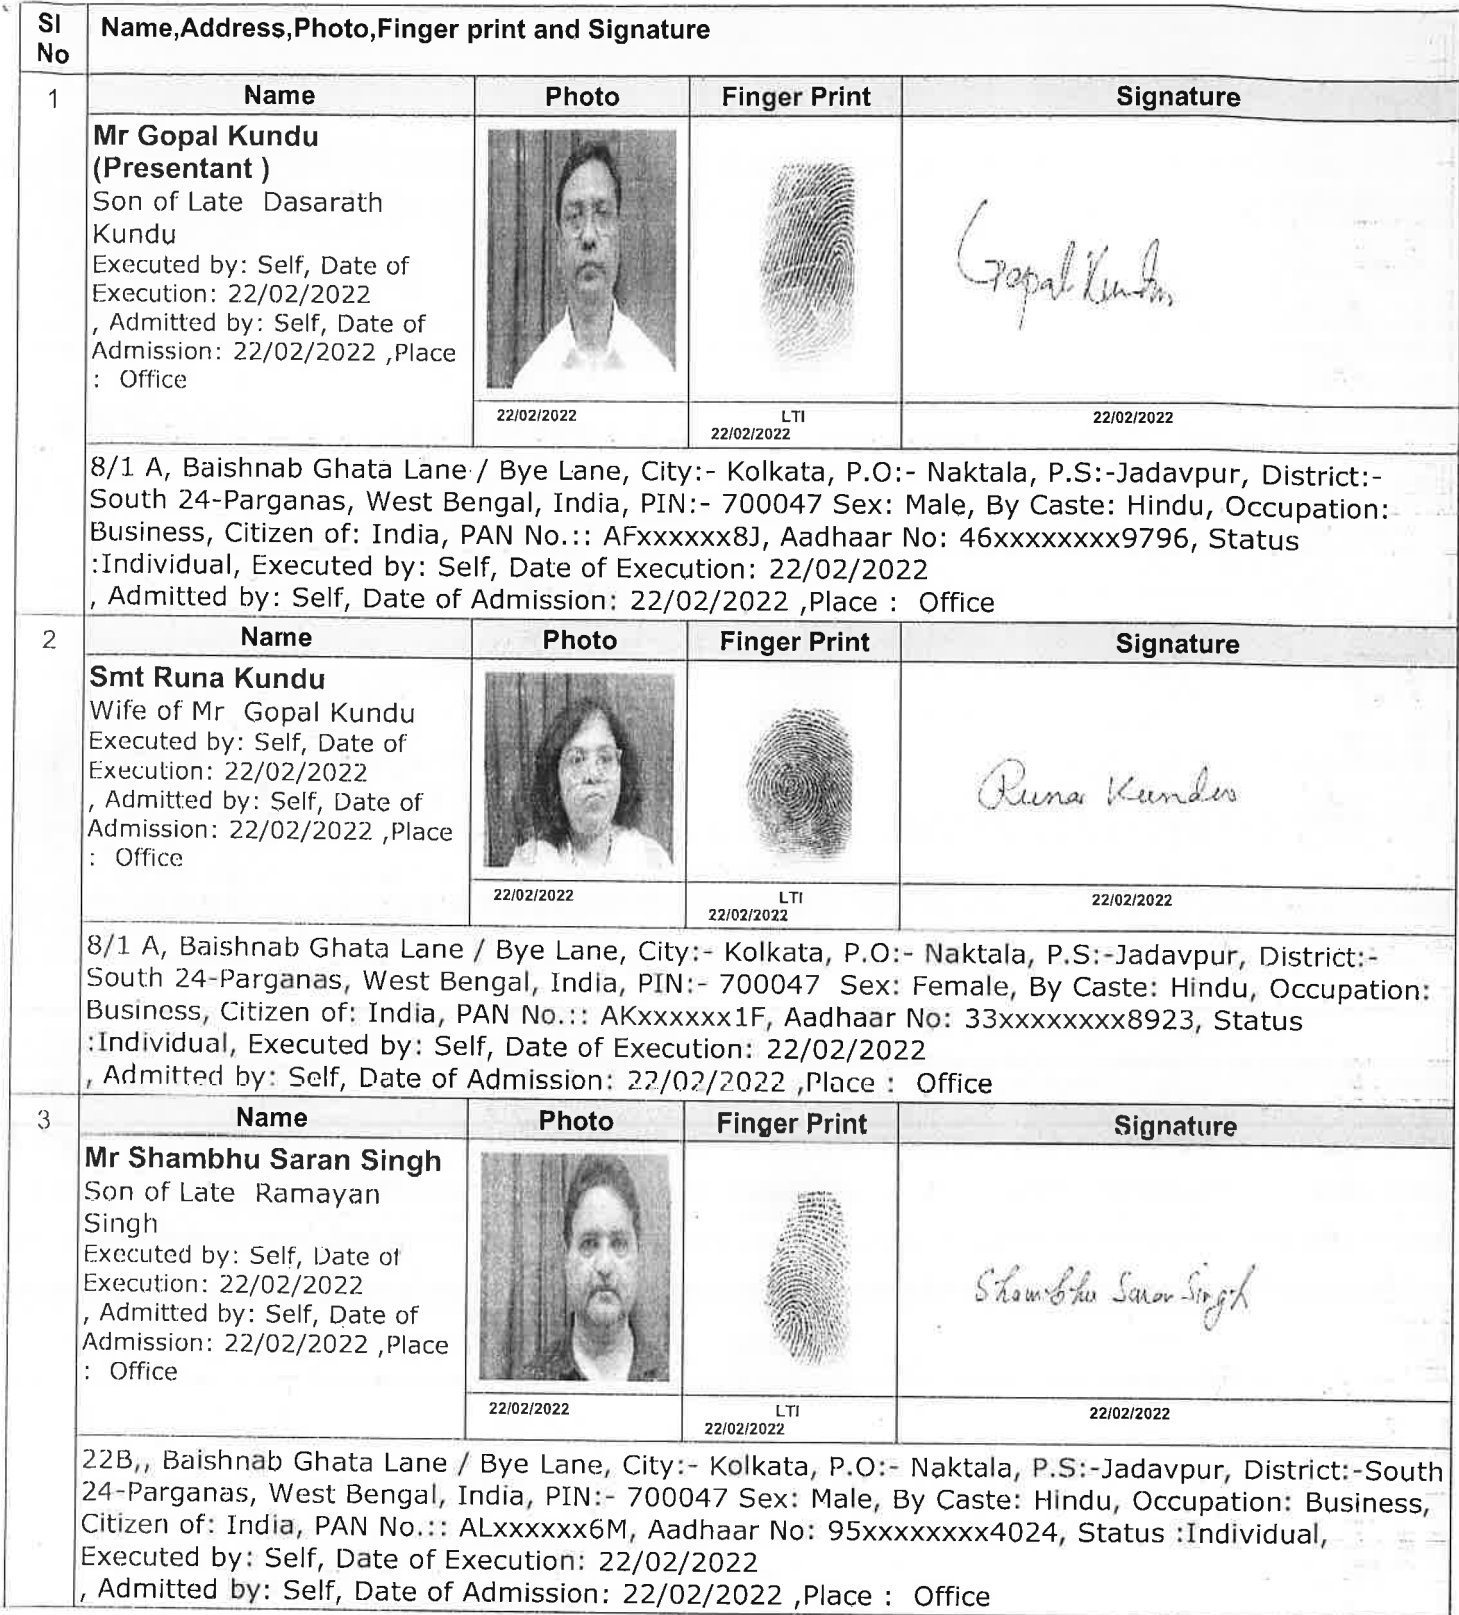 Sl
No
Name,Address,Photo,Finger print and Signature
1
Name
Photo
Finger Print
Signature
Mr Gopal Kundu
(Presentant )
Son of Late Dasarath
Kundu
Executed by: Self, Date of
Execution: 22/02/2022
, Admitted by: Self, Date of
Admission: 22/02/2022 ,Place
: Office
Gopal Kundu
22/02/2022
LTI
22/02/2022
22/02/2022
8/1 A, Baishnab Ghata Lane / Bye Lane, City:- Kolkata, P.O:- Naktala, P.S:-Jadavpur, District:-
South 24-Parganas, West Bengal, India, PIN:- 700047 Sex: Male, By Caste: Hindu, Occupation:
Business, Citizen of: India, PAN No.:: AFxxxxxx8J, Aadhaar No: 46xxxxxxxx9796, Status
:Individual, Executed by: Self, Date of Execution: 22/02/2022
, Admitted by: Self, Date of Admission: 22/02/2022 ,Place : Office
2
Name
Photo
Finger Print
Signature
Smt Runa Kundu
Wife of Mr Gopal Kundu
Executed by: Self, Date of
Execution: 22/02/2022
, Admitted by: Self, Date of
Admission: 22/02/2022 ,Place
: Office
Runa Kundu
22/02/2022
LTI
22/02/2022
22/02/2022
8/1 A, Baishnab Ghata Lane / Bye Lane, City:- Kolkata, P.O:- Naktala, P.S:-Jadavpur, District:-
South 24-Parganas, West Bengal, India, PIN:- 700047 Sex: Female, By Caste: Hindu, Occupation:
Business, Citizen of: India, PAN No.:: AKxxxxxx1F, Aadhaar No: 33xxxxxxxx8923, Status
:Individual, Executed by: Self, Date of Execution: 22/02/2022
, Admitted by: Self, Date of Admission: 22/02/2022 ,Place : Office
3
Name
Photo
Finger Print
Signature
Mr Shambhu Saran Singh
Son of Late Ramayan
Singh
Executed by: Self, Date of
Execution: 22/02/2022
, Admitted by: Self, Date of
Admission: 22/02/2022 ,Place
: Office
Shambhu Saran Singh
22/02/2022
LTI
22/02/2022
22/02/2022
22B,, Baishnab Ghata Lane / Bye Lane, City:- Kolkata, P.O:- Naktala, P.S:-Jadavpur, District:-South
24-Parganas, West Bengal, India, PIN:- 700047 Sex: Male, By Caste: Hindu, Occupation: Business,
Citizen of: India, PAN No.:: ALxxxxxx6M, Aadhaar No: 95xxxxxxxx4024, Status :Individual,
Executed by: Self, Date of Execution: 22/02/2022
, Admitted by: Self, Date of Admission: 22/02/2022 ,Place : Office